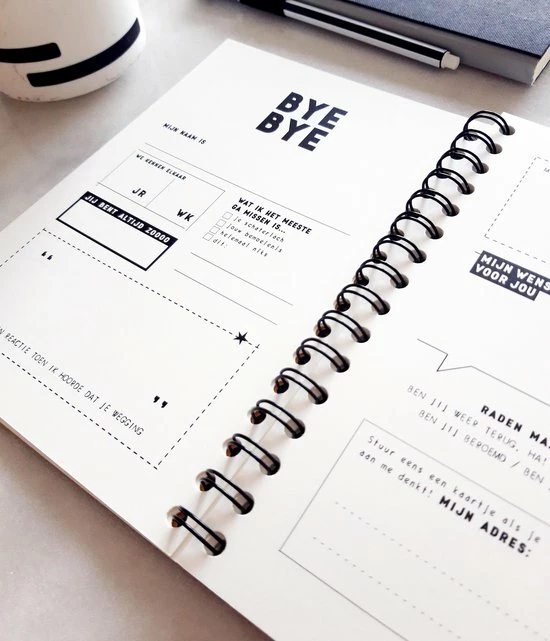 BYE
BYE
MIJN NAAM IS
WE KENNEN ELKAAR
JR
WK
JIJ BENT ALTIJD ZOOOO
WAT IK HET MEESTE
GA MISSEN IS...
je schaterlach
jouw bemoeienis
helemaal niks
dit:
“
REACTIE TOEN IK HOORDE DAT JE WEGGING
”
MIJN WENS
VOOR JOU
RADEN
BEN JIJ WEER TERUG,
BEN JIJ BEROEMD / BEN
Stuur eens een kaartje als je
aan me denkt! MIJN ADRES: